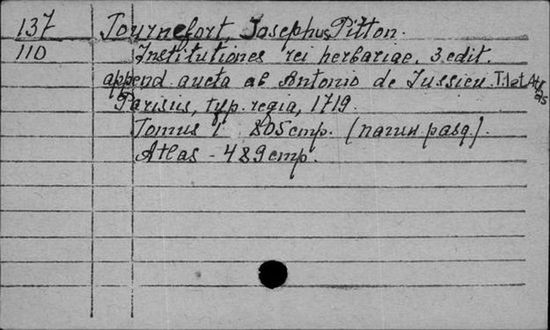 137 Tournefort, Josephus Pitton.
110 Institutiones rei herbariae. 3 edit.
append. aucta ab Antonio de Jussieu. T. 1 et Atlas
Parisiis, typ. regia, 1719.
Tomus 1 805 стр. (латин. разд.).
Atlas - 489 стр.